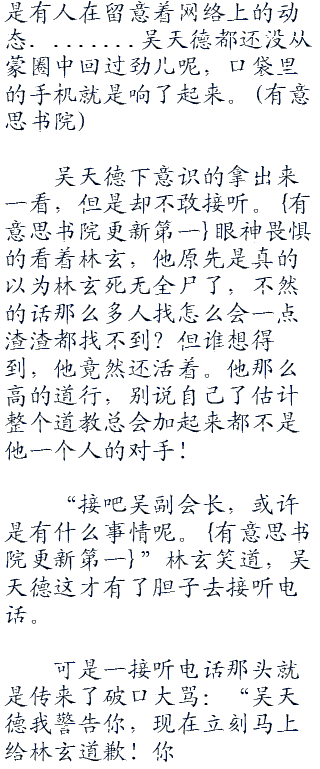 是有人在留意着网络上的动
态．．．．．．．．吴天德都还没从
蒙圈中回过劲儿呢，口袋里
的手机就是响了起来。(有意
思书院)
吴天德下意识的拿出来
一看，但是却不敢接听。{有
意思书院更新第一}眼神畏惧
的看着林玄，他原先是真的
以为林玄死无全尸了，不然
的话那么多人找怎么会一点
渣渣都找不到？但谁想得
到，他竟然还活着。他那么
高的道行，别说自己了估计
整个道教总会加起来都不是
他一个人的对手！
“接吧吴副会长，或许
是有什么事情呢。{有意思书
院更新第一}”林玄笑道，吴
天德这才有了胆子去接听电
话。
可是一接听电话那头就
是传来了破口大骂：“吴天
德我警告你，现在立刻马上
给林玄道歉！你